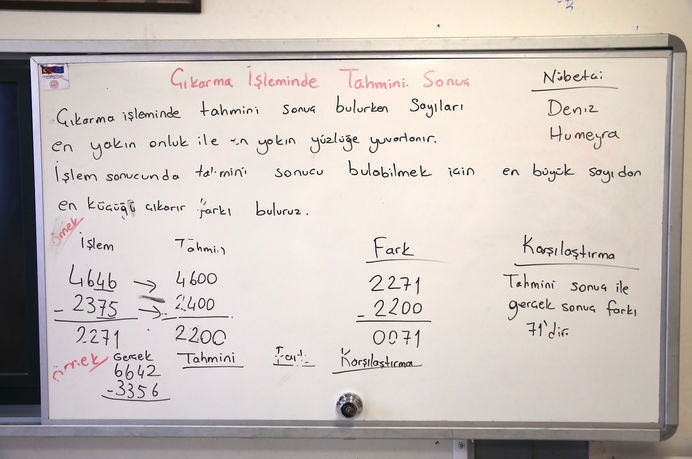 Çıkarma İşleminde Tahmini Sonuç
Nöbetçi
Deniz
Humeyra
Çıkarma işleminde tahmini sonuç bulurken Sayıları
en yakın onluk ile en yakın yüzlüğe yuvarlanır.
İşlem sonucunda tahmini sonucu bulabilmek için en büyük sayıdan
en küçüğü çıkarır farkı buluruz.
örnek
İşlem Tahmin Fark Karşılaştırma
4646 → 4600 2271 Tahmini sonuç ile
- 2375 → - 2400 - 2200 gerçek sonuç farkı
2271 2200 0071 71'dir.
örnek Gerçek Tahmini Karşılaştırma
6642
-3356